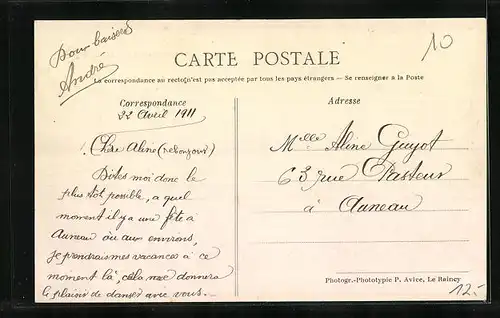 Doux baisers
André
10
CARTE POSTALE
La correspondance au recto n'est pas acceptée par tous les pays étrangers — Se renseigner à la Poste
Correspondance
22 Avril 1911
Chère Aline (rebonjour)
Dites moi donc le
plus tôt possible, a quel
moment il y a une fête à
Auneau ou aux environs,
je prendrais mes vacances à ce
moment là, cela me donnera
le plaisir de danser avec vous.-
Adresse
Melle Aline Guyot
63 rue Pasteur
à Auneau
Photogr.-Phototypie P. Avice, Le Raincy
12.-